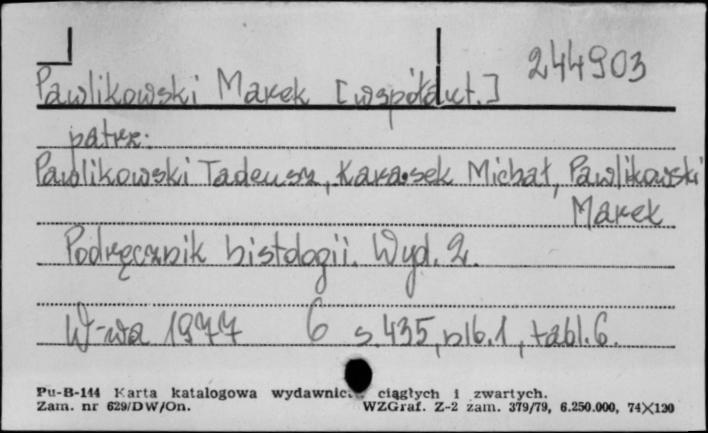 244903
Pawlikowski Marek [współaut.]
patrz:
Pawlikowski Tadeusz, Karasek Michał, Pawlikowski
Marek
Podręcznik histologii. Wyd. 2.
W-wa 1977 6 s. 435, nlb. 1, tabl. 6.
Pu-B-144 Karta katalogowa wydawnic. ciągłych i zwartych.
Zam. nr 629/DW/On. WZGraf. Z-2 zam. 379/79, 6.250.000, 74X120